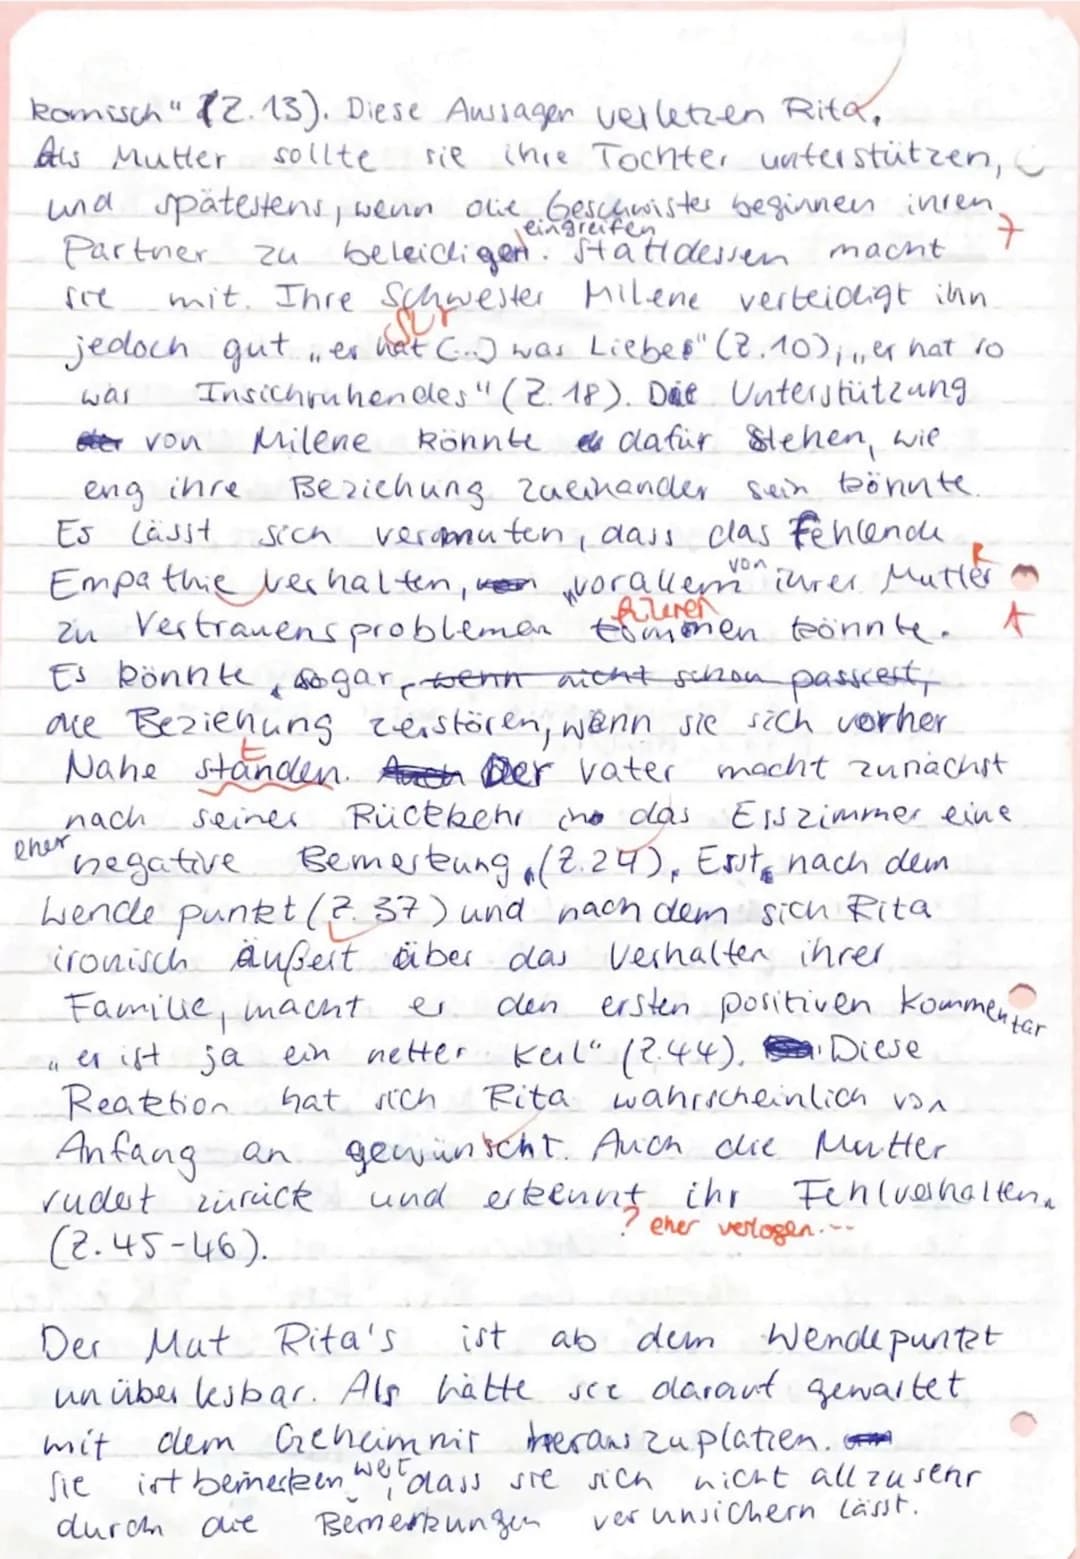 komisch" (Z.13). Diese Aussagen verletzen Rita.
Als Mutter sollte sie ihre Tochter unterstützen,
und spätestens, wenn die Geschwister beginnen ihren
eingreifen 7
Partner zu beleidigen. Stattdessen macht
sie mit. Ihre Schwester Milene verteidigt ihn
jedoch gut „er hat (...) was Liebes" (Z.10); „er hat so
was Insichruhendes" (Z.18). Die Unterstützung
von Milene könnte dafür stehen, wie
eng ihre Beziehung zueinander sein könnte.
Es lässt sich vermuten, dass das Fehlende
Empathie verhalten, vorallem von ihrer Mutter R
führen A
zu Vertrauensproblemen kommen könnte.
Es könnte, sogar, wenn nicht schon passiert,
die Beziehung zerstören, wenn sie sich vorher
t
Nahe standen. Auch Der Vater macht zunächst
nach seiner Rückkehr ins das Esszimmer eine
eher negative Bemerkung (Z.24). Erst nach dem
Wende punkt (Z.37) und nach dem sich Rita
ironisch äußert über das Verhalten ihrer
Familie, macht er den ersten positiven Kommentar
„er ist ja ein netter Kerl" (Z.44). Diese
Reaktion hat sich Rita wahrscheinlich von
Anfang an gewünscht. Auch die Mutter
rudert zurück und erkennt ihr Fehlverhalten
? eher verlogen...
(Z.45-46).
Der Mut Rita's ist ab dem Wendepunkt
unüber lesbar. Als hätte sie darauf gewartet
mit dem Geheimnis herauszuplatzen.
Sie ist bemerkenswert, dass sie sich nicht allzu sehr
durch die Bemerkungen verunsichern lässt.